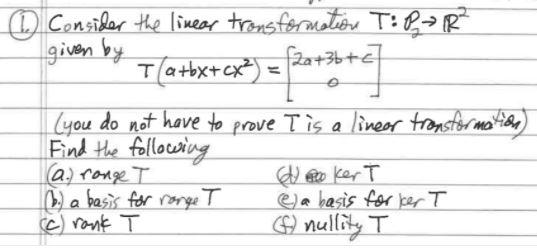 1. Consider the linear transformation T: P₂→ℝ²
given by
T(a+bx+cx²) = [2a+3b+c
0]
(you do not have to prove T is a linear transformation)
Find the following
(a.) range T (d) ker T
(b.) a basis for range T (e) a basis for ker T
(c) rank T (f) nullity T